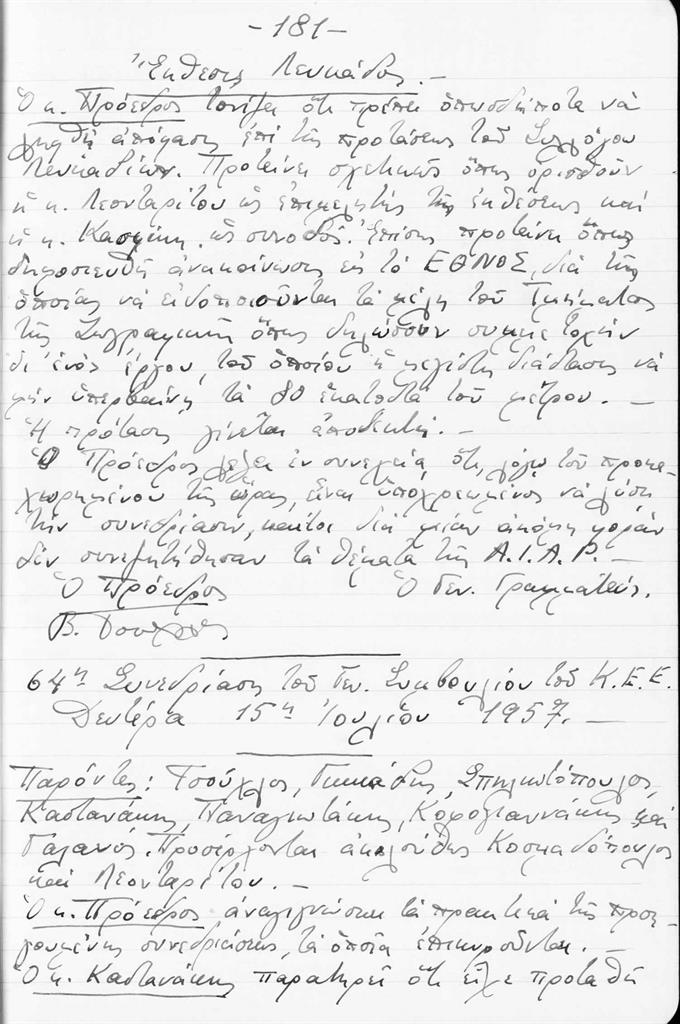 -181-
Ἔκθεσις Λευκάδος. -
Ὁ κ. Πρόεδρος τονίζει ὅτι πρέπει ὁπωσδήποτε νὰ
ληφθῇ ἀπόφασις ἐπὶ τῆς προτάσεως τοῦ Συλλόγου
Λευκαδίων. Προτείνει σχετικῶς ὅπως ὁρισθοῦν
ἡ κ. Λεονταρίτου ὡς ἐπιμελητὴς τῆς ἐκθέσεως καὶ
ἡ κ. ὡς συνοδός. Ἐπίσης προτείνει ὅπως
δημοσιευθῇ ἀνακοίνωσις εἰς τὸ ΕΘΝΟΣ, διὰ τῆς
ὁποίας νὰ εἰδοποιοῦνται τὰ μέλη τοῦ Τμήματος
τῆς Ζωγραφικῆς ὅπως δηλώσουν συμμετοχὴν
δι' ἑνὸς ἔργου, τοῦ ὁποίου ἡ μεγίστη διάστασις νὰ
μὴν ὑπερβαίνῃ τὰ 80 ἑκατοστὰ τοῦ μέτρου. -
Ἡ πρότασις γίνεται ἀποδεκτή. -
Ὁ Πρόεδρος λέγει ἐν συνεχείᾳ ὅτι, λόγῳ τοῦ προκε-
χωρημένου τῆς ὥρας, εἶναι ὑποχρεωμένος νὰ λύσῃ
τὴν συνεδρίασιν, καίτοι διὰ μίαν ἀκόμη φορὰν
δὲν συνεζητήθησαν τὰ θέματα τῆς A.I.A.P. -
Ὁ Πρόεδρος Ὁ Γεν. Γραμματεύς.
64η Συνεδρίασις τοῦ Γεν. Συμβουλίου τοῦ Κ.Ε.Ε.
Δευτέρα 15η Ἰουλίου 1957. -
Παρόντες: Τσοῦχλος, Σπηλιωτόπουλος,
Καστανάκης, Παναγιωτάκης, Κορογιαννάκης καὶ
Γαλανός. Προσέρχονται ἀκολούθως Κοσμαδόπουλος
καὶ Λεονταρίτου. -
Ὁ κ. Πρόεδρος ἀναγιγνώσκει τὰ πρακτικὰ τῆς προη-
γουμένης συνεδριάσεως, τὰ ὁποῖα ἐπικυροῦνται. -
Ὁ κ. Καστανάκης παρατηρεῖ ὅτι εἶχε προταθῆ